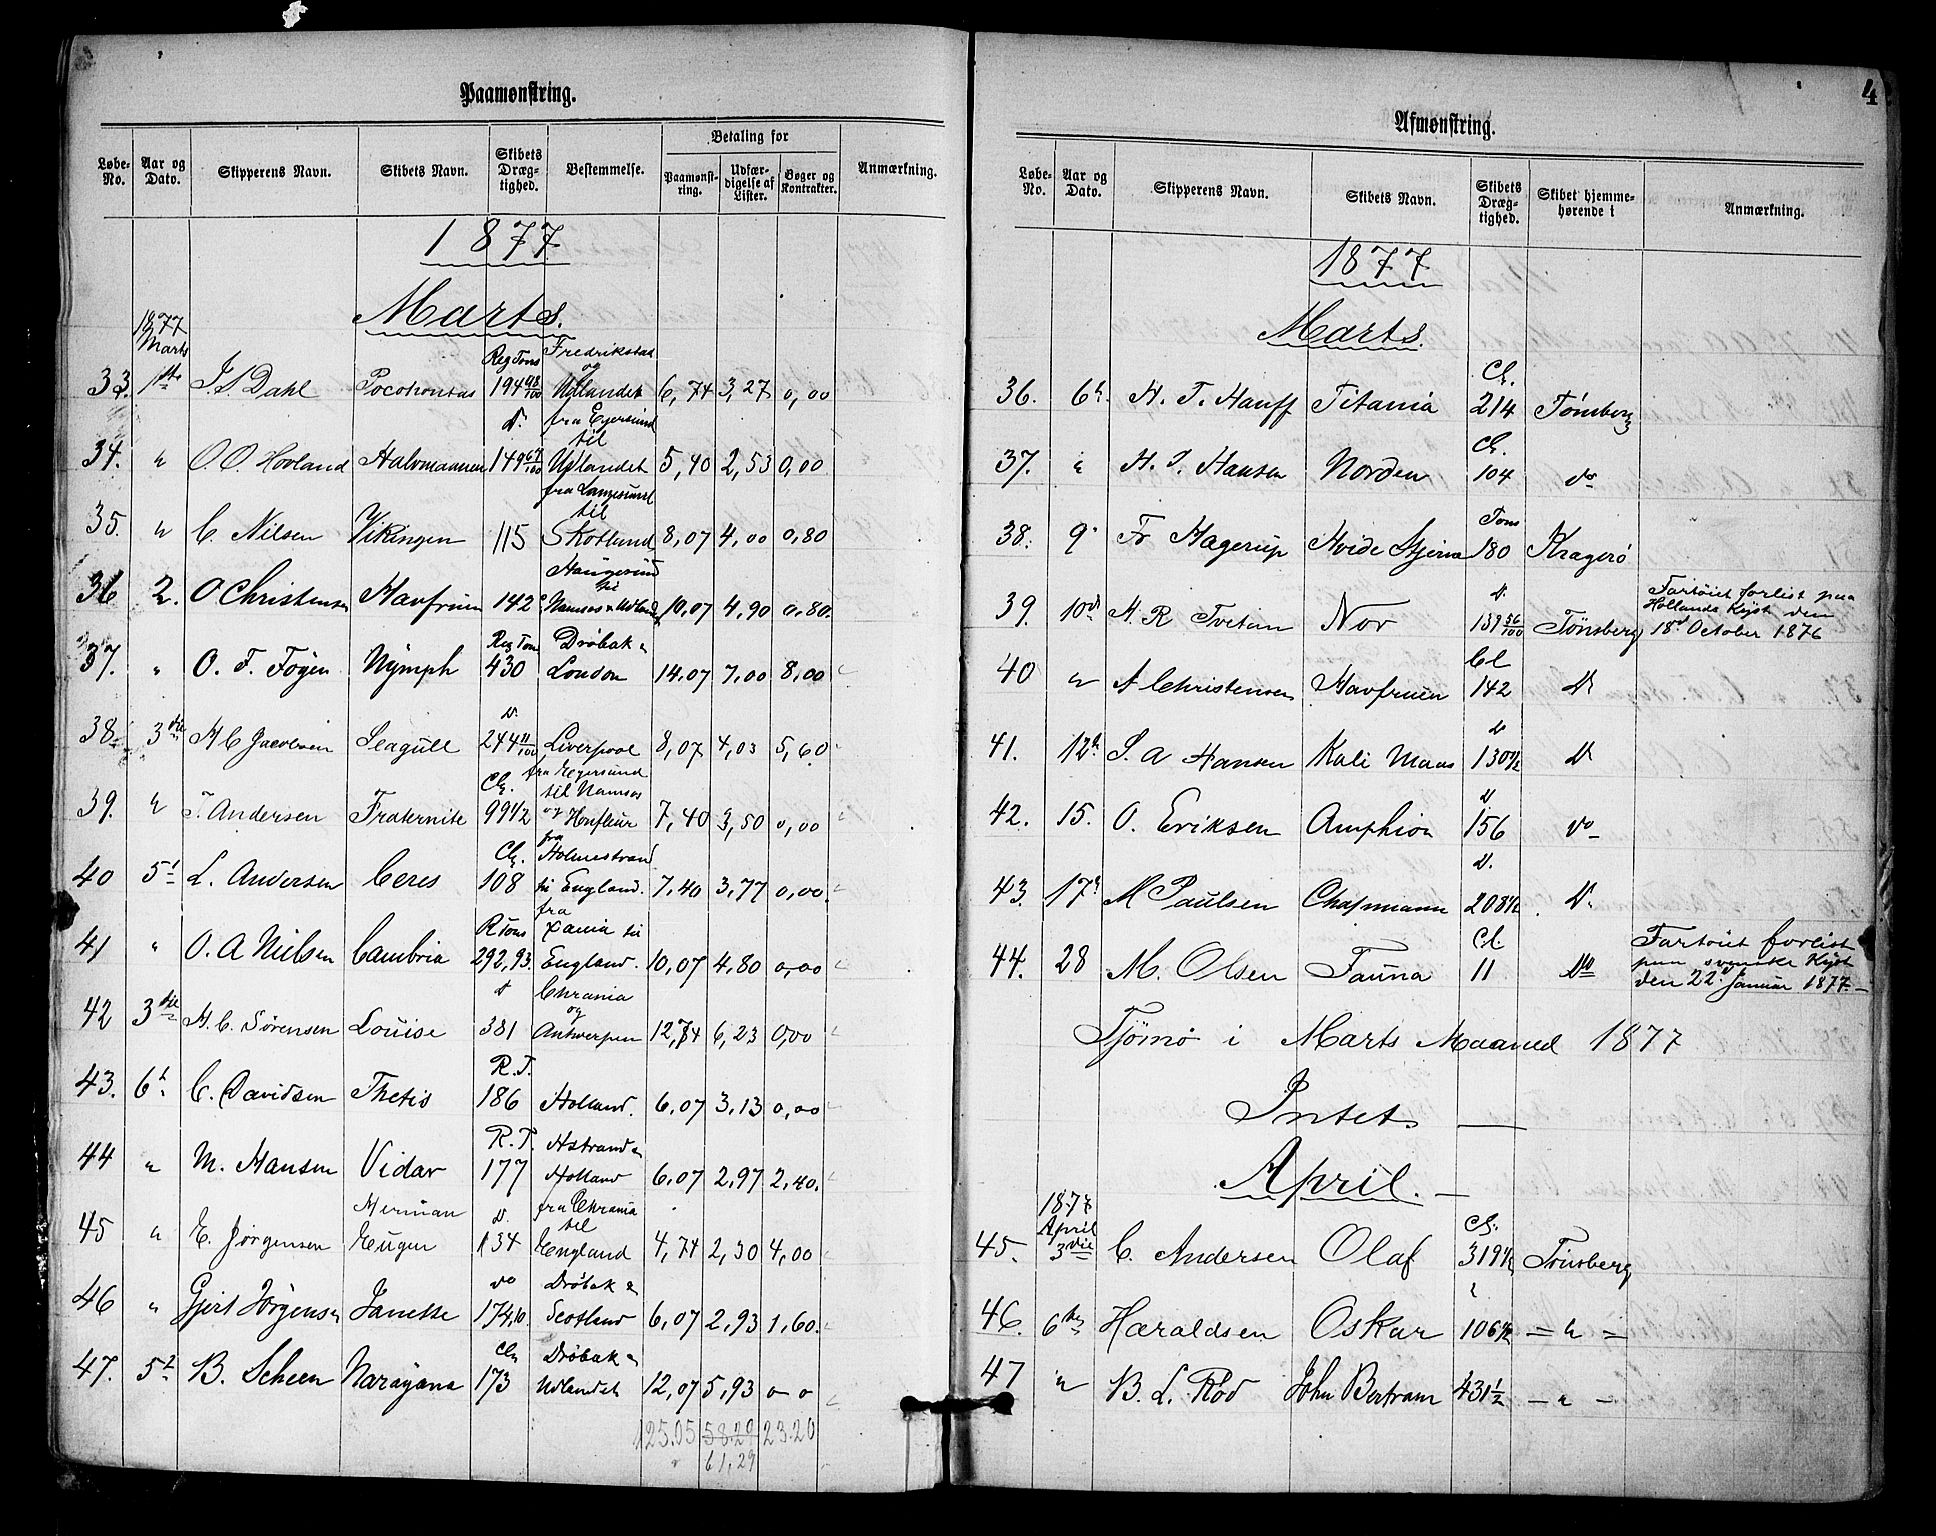 Paamønstring.
Løbe-No. Aar og Dato. Skipperens Navn. Skibets Navn. Skibets Dræg-tighed. Bestemmelse. Betaling for Paamønst-ring. Udfær-digelse af Lister. Bøger og Kontrakter. Anmærkning.
1877
Marts.
1877 Marts Reg Tons Fredrikstad og
33. 1ste J. S. Dahl Pocohontas 194 98/100 Udlandet 6,74 3,27 0,00
d. fra Egersund til
34. " O. O. Hovland Halvmaanen 149 67/100 Udlandet 5,40 2,53 0,00
fra Langesund til
35. " C. Nilsen Vikingen 115 Skotland 8,07 4,00 0,80
Haugesund til
36 2. O Christensen Havfruen 142 Namsos & Udland 10,07 4,90 0,80.
Reg Ton Dröbak "
37. " O. F. Föyen Nymph 430 London 14,07 7,00 8,00
d.
38. 3die H C Jacobsen Seagull 244 11/100 Liverpool 8,07 4,03 5,60
Cl. fra Egersund til Namsos
39. " T. Andersen Fraternite 99 1/2 og Honfleur 7,40 3,50 0,00
Cl. fra Holmestrand
40 5 L. Andersen Ceres 108 til England. 7,40 3,77 0,00
R Tons fra
41 " O. A Nielsen Cambria 292,93. England. 10,07 4,80 0,00
d Chrania og
42 3die H. C. Sörensen Louise 381 Antwerpen 12,74 6,23 0,00
R. T.
43. 6 C. Davidsen Thetis 186 Holland. 6,07 3,13 0,00
R. T. Hstrand "
44 " M. Hansen Vidar 177 Holland 6,07 2,97 2,40.
Herman d. fra Chrania til
45 " E. Jörgensen Eugen 134 England 4,74 2,30 4,00
do Dröbak "
46 " Gjert Jörgensen Janette 174,10 Scotland 6,07 2,93 1,60.
Cl. Dröbak "
47. 5 B. Scheen Narayana 173 Udlandet 12,07 5,93 0 0
125.05 58.29 23.20
61,29
4
Afmønstring.
Løbe-No. Aar og Dato. Skipperens Navn. Skibets Navn. Skibets Dræg-tighed. Skibet hjemme-hørende i Anmærkning.
1877
Marts.
Cl.
36. 6 H. T. Hauff Titania 214 Tønsberg
Cl.
37. " H. J. Hansen Norden 104 do
Tons
38. 9 Fr Hagerup Hvide Stjerne 180 Kragerö
d. Fartöiet forlist paa Hollands Kyst den
39. 10 H. R Tvetan Nor 139 56/100 Tönsberg 18d October 1876
Cl
40 " A Christensen Havfruen 142 Do
d
41. 12 S. A Hansen Kali Maas 130 1/2 Do
d
42. 15. O. Eriksen Amphion 156 do
d.
43. 17 M Paulsen Chapmann 208 1/2 Do
Cl. Fartöiet forlist paa svenske Kyst
44. 28 M. Olsen Fauna 11 Do den 22d Januar 1877.
Tjömö i Marts Maaned 1877
Intet.
April.
1877 April Cl.
45. 3die C. Andersen Olaf 319 1/2 Tönsberg
"
46. 6te Haraldsen Oskar 106 1/2 = " =
47 " B. L. Röd John Bertram 431 1/2 - " -